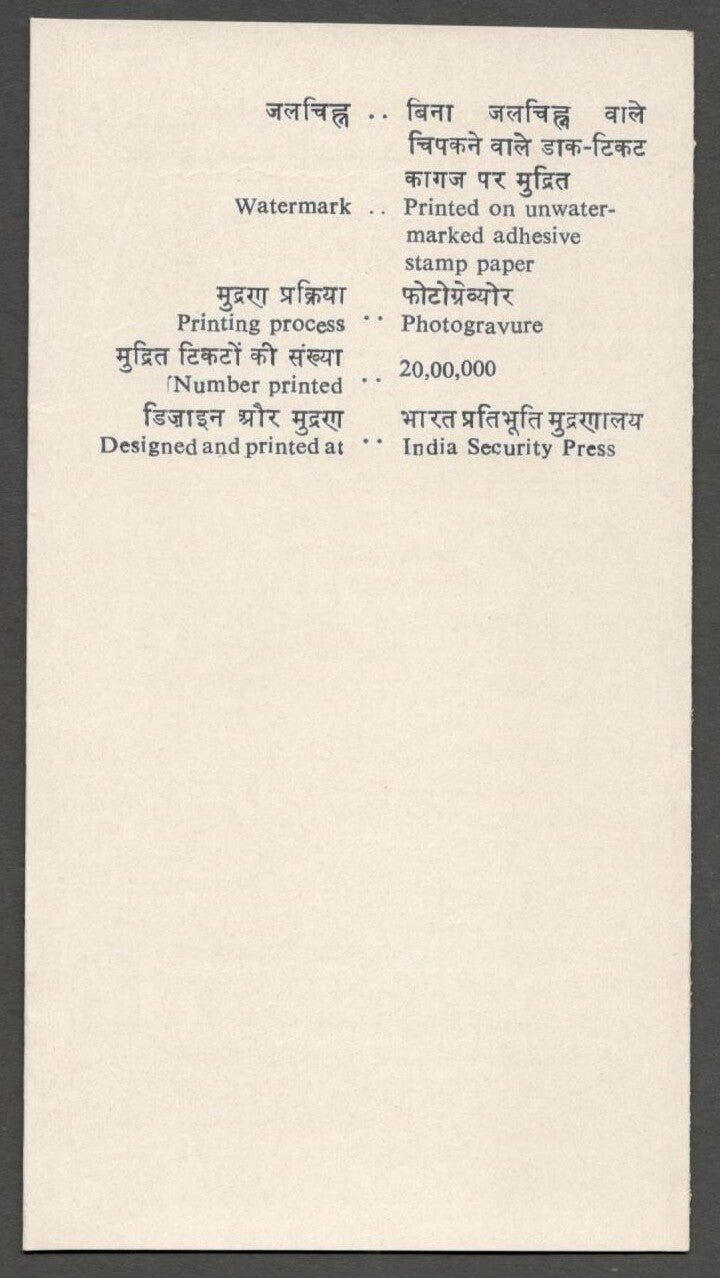 जलचिह्न .. बिना जलचिह्न वाले
चिपकने वाले डाक-टिकट
कागज पर मुद्रित
Watermark .. Printed on unwater-
marked adhesive
stamp paper
मुद्रण प्रक्रिया .. फोटोग्रेव्योर
Printing process Photogravure
मुद्रित टिकटों की संख्या .. 20,00,000
Number printed
डिज़ाइन और मुद्रण .. भारत प्रतिभूति मुद्रणालय
Designed and printed at India Security Press